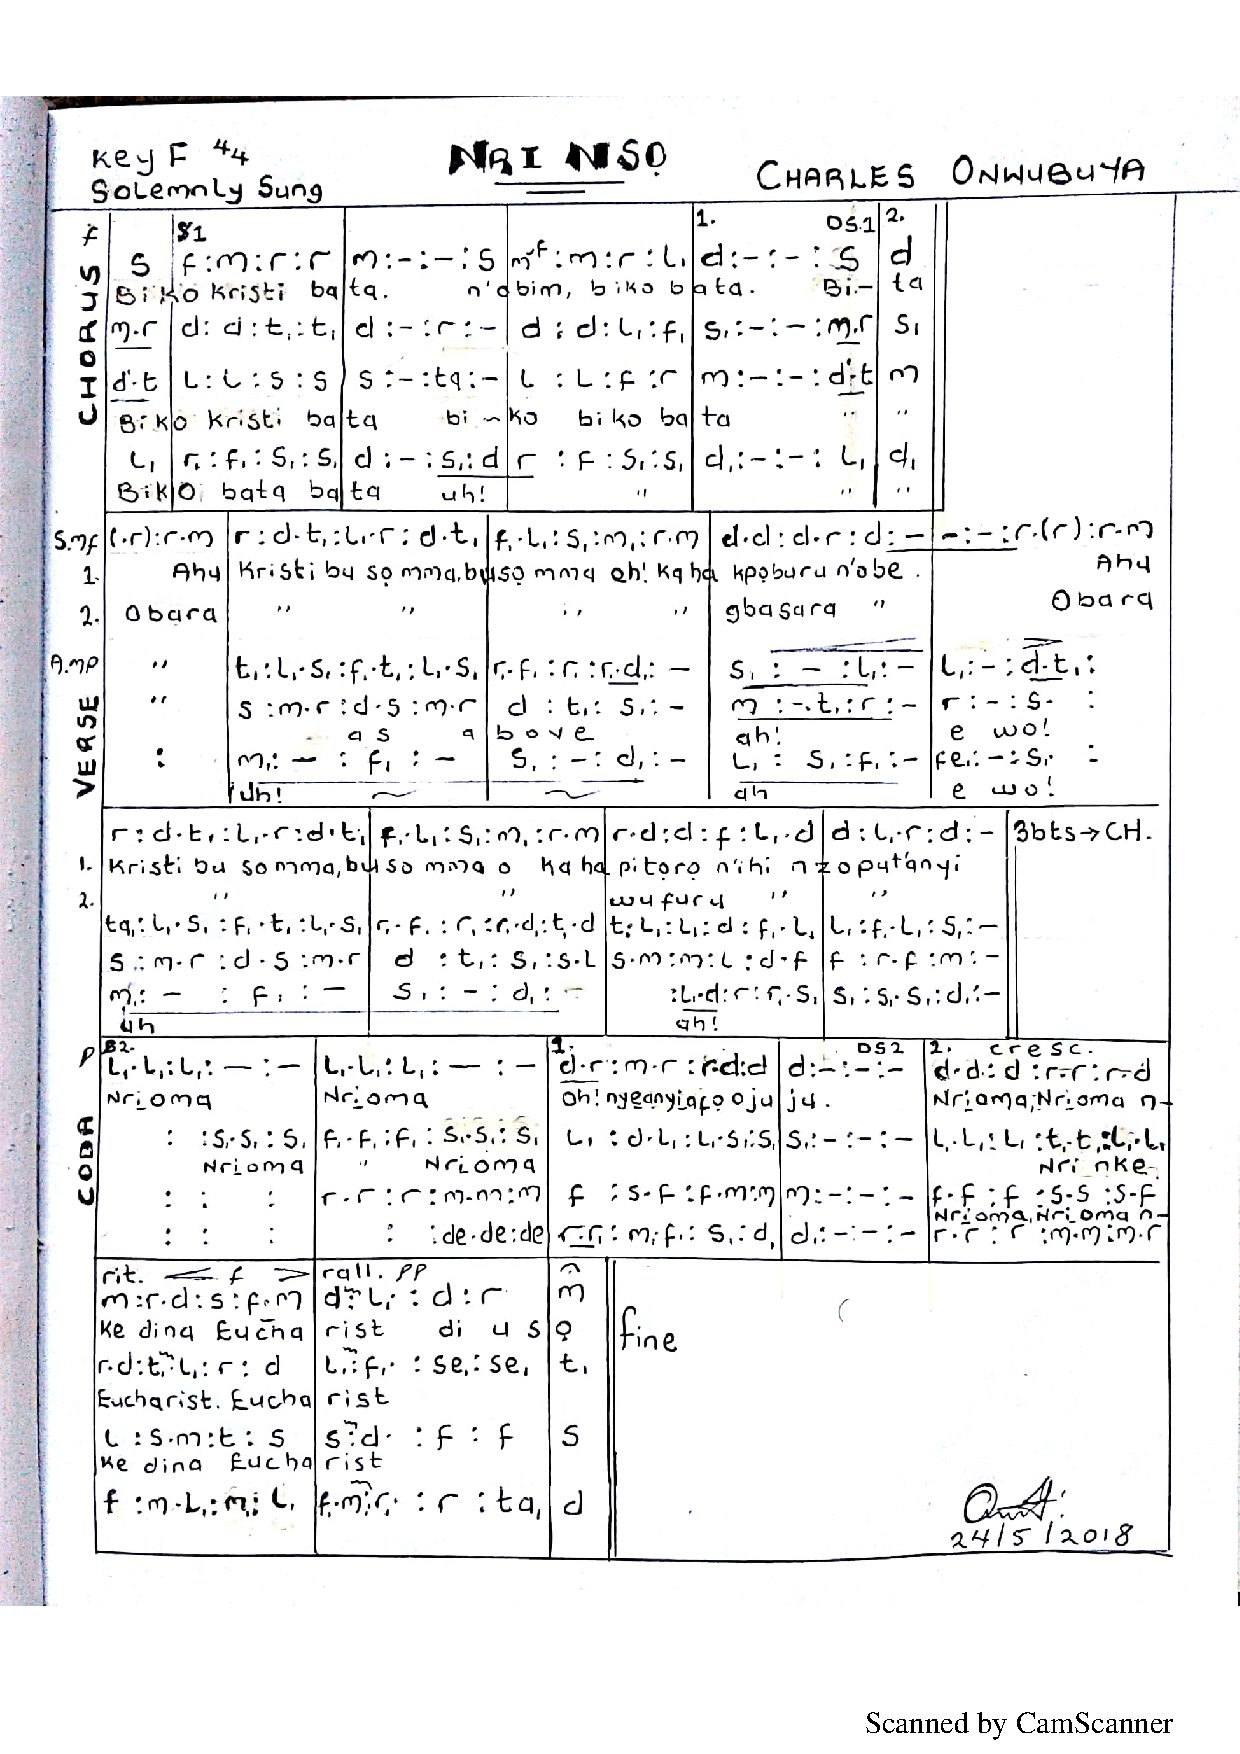 Key F 4/4
NRI NSỌ
CHARLES ONWUBUYA
Solemnly Sung
CHORUS f
$1 1. DS.1 2.
s f:m:r:r m:-:-:s m^f:m:r:L₁ d:-:-:s d
Biko Kristi ba ta. n'obim, biko bata. Bi- ta
m.r d:d:t₁:t₁ d:-:r:- d:d:L₁:f₁ s₁:-:-:m.r s₁
d.t L:L:s:s s:-:ta:- L:L:f:r m:-:-:d.t m
Biko Kristi ba ta bi - ko biko ba ta " "
L₁ r₁:f₁:s₁:s₁ d:-:s₁:d r:f:s₁:s₁ d₁:-:-:L₁ d₁
Biko bata ba ta uh! " " "
VERSE
S.mf (.r):r.m r:d.t₁:L₁.r:d.t₁ f₁.L₁:s₁:m₁:r.m d.d:d.r:d:- -:-:r.(r):r.m
1. Ahu Kristi bu so mma, bu so mma oh! Ka ha kpoburu n'obe. Ahu
2. Obara " " " " gbasara " Obara
A.mp " t₁:L₁.s₁:f₁.t₁:L₁.s₁ r₁.f₁:r₁:r₁.d₁:- s₁:-:L₁:- L₁:-:d.t₁:
" s:m.r:d.s:m.r d:t₁:s₁:- m:-.t₁:r:- r:-:s. :
as above ah! e wo!
: m₁:-:f₁:- s₁:-:d₁:- L₁:s₁:f₁:- fe₁:-:s₁. -
Uh! ah e wo!
r:d.t₁:L₁.r:d.t₁ f₁.L₁:s₁:m₁:r.m r.d:d:f:L₁.d d:L₁.r:d:- 3bts→CH.
1. Kristi bu so mma, bu so mma o ka ha pitoro n'ihi nzoputanyi
2. " " wufuru " "
ta₁:L₁.s₁:f₁.t₁:L₁.s₁ r₁.f₁:r₁:r₁.d₁:t₁.d t₁.L₁:L₁:d:f₁.L₁ L₁:f₁.L₁:s₁:-
s:m.r:d.s:m.r d:t₁:s₁:s.L s.m:m:L:d.f f:r.f:m:-
m₁:-:f₁:- s₁:-:d₁:- :L₁.d:r:r₁.s₁ s₁:s₁.s₁:d₁:-
uh ah!
CODA
p $2. 1. DS2 2. cresc.
L₁.L₁:L₁:-:- L₁.L₁:L₁:-:- d.r:m.r:r.d:d d:-:-:- d.d:d:r.r:r.d
Nrioma Nrioma Oh! nyeanyiafo oju ju. Nrioma, Nrioma n-
: :s₁.s₁:s₁ f₁.f₁:f₁:s₁.s₁:s₁ L₁:d.L₁:L₁.s₁:s₁ s₁:-:-:- L₁.L₁:L₁:t₁.t₁:L₁.L₁
Nrioma " Nrioma Nri nke
: : : r.r:r:m.m:m f:s.f:f.m:m m:-:-:- f.f:f:s.s:s.f
Nrioma, Nrioma n-
: : : : :de.de:de r₁.r₁:m₁.f₁:s₁:d₁ d₁:-:-:- r.r:r:m.m:m.r
rit. < f > rall. pp
m:r.d:s:f.m d:L₁.:d:r m
Ke dina Eucha rist di u s ọ fine
r.d:t₁:L₁:r:d L₁:f₁.:se₁:se₁ t₁
Eucharist. Eucha rist
L:s.m:t:s s:d.:f:f s
Ke dina Eucha rist
f:m.L₁:m₁:L₁ f₁.m₁:r₁.:r:ta₁ d
24/5/2018
Scanned by CamScanner